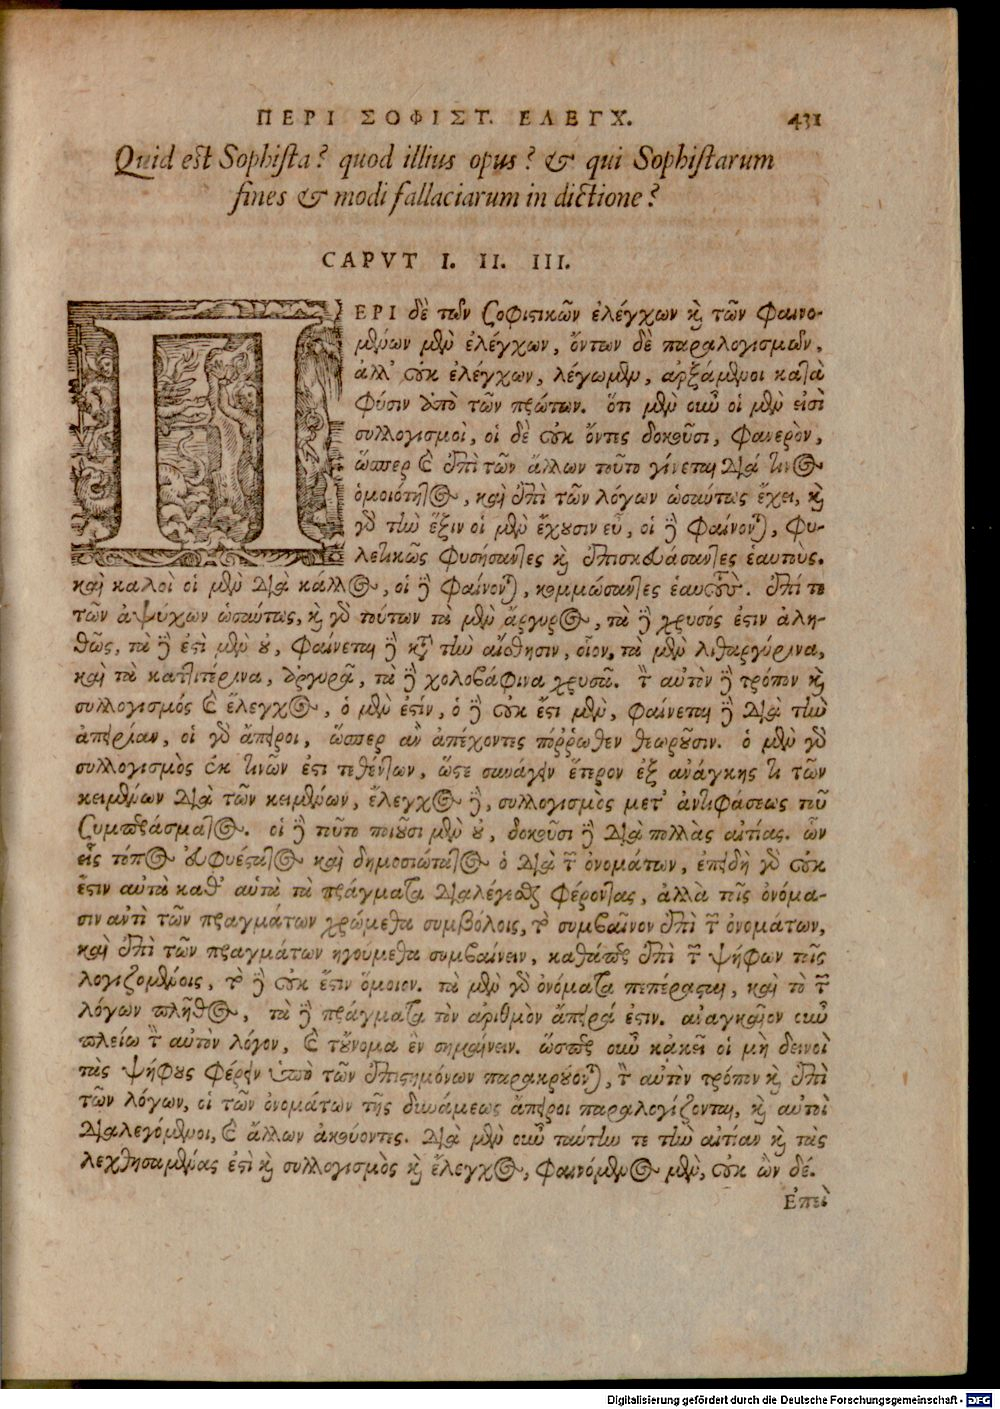 ΠΕΡΙ ΣΟΦΙΣΤ. ΕΛΕΓΧ. 431
Quid est Sophista? quod illius opus? & qui Sophistarum
fines & modi fallaciarum in dictione?
CAPVT I. II. III.
ΠΕΡΙ δὲ τῶν σοφιστικῶν ἐλέγχων καὶ τῶν φαινο-
μένων μὲν ἐλέγχων, ὄντων δὲ παραλογισμῶν,
ἀλλ᾽ οὐκ ἐλέγχων, λέγωμεν, ἀρξάμενοι κατὰ
φύσιν ἀπὸ τῶν πρώτων. ὅτι μὲν οὖν οἱ μὲν εἰσὶ
συλλογισμοὶ, οἱ δὲ οὐκ ὄντες δοκοῦσι, φανερὸν,
ὥσπερ καὶ ἐπὶ τῶν ἄλλων τοῦτο γίνεται διά τινος
ὁμοιότητος, καὶ ἐπὶ τῶν λόγων ὡσαύτως ἔχει, καὶ
γὰρ τὴν ἕξιν οἱ μὲν ἔχουσιν εὖ, οἱ δὲ φαίνονται, φυ-
λετικῶς φυσήσαντες καὶ ἐπισκευάσαντες ἑαυτούς.
καὶ καλοὶ οἱ μὲν διὰ κάλλος, οἱ δὲ φαίνονται, κομμώσαντες ἑαυτούς. ἐπί τε
τῶν ἀψύχων ὡσαύτως, καὶ γὰρ τούτων τὰ μὲν ἄργυρος, τὰ δὲ χρυσός ἐστιν ἀλη-
θῶς, τὰ δὲ ἔστι μὲν οὐ, φαίνεται δὲ κατὰ τὴν αἴσθησιν, οἷον, τὰ μὲν λιθαργύρινα,
καὶ τὰ καττιτέρινα, ἀργυρᾶ, τὰ δὲ χολοβάφινα χρυσᾶ. τὸν αὐτὸν δὲ τρόπον καὶ
συλλογισμός καὶ ἔλεγχος, ὁ μὲν ἐστίν, ὁ δὲ οὐκ ἔστι μὲν, φαίνεται δὲ διὰ τὴν
ἀπειρίαν, οἱ γὰρ ἄπειροι, ὥσπερ ἂν ἀπέχοντες πόῤῥωθεν θεωροῦσιν. ὁ μὲν γὰρ
συλλογισμὸς ἐκ τινῶν ἐστι τεθέντων, ὥστε συνάγειν ἕτερον ἐξ ἀνάγκης τι τῶν
κειμένων διὰ τῶν κειμένων, ἔλεγχος δὲ, συλλογισμὸς μετ᾽ ἀντιφάσεως τοῦ
συμπεράσματος. οἱ δὲ τοῦτο ποιοῦσι μὲν οὐ, δοκοῦσι δὲ διὰ πολλὰς αἰτίας. ὧν
εἷς τόπος εὐφυέστατος καὶ δημοσιώτατος ὁ διὰ τῶν ὀνομάτων, ἐπειδὴ γὰρ οὐκ
ἔστιν αὐτὰ καθ᾽ αὑτὰ τὰ πράγματα διαλέγεσθαι φέροντας, ἀλλὰ τοῖς ὀνόμα-
σιν ἀντὶ τῶν πραγμάτων χρώμεθα συμβόλοις, τὸ συμβαῖνον ἐπὶ τῶν ὀνομάτων,
καὶ ἐπὶ τῶν πραγμάτων ἡγούμεθα συμβαίνειν, καθάπερ ἐπὶ τῶν ψήφων τοῖς
λογιζομένοις, τὸ δὲ οὐκ ἔστιν ὅμοιον. τὰ μὲν γὰρ ὀνόματα πεπέρασται, καὶ τὸ τῶν
λόγων πλῆθος, τὰ δὲ πράγματα τὸν ἀριθμὸν ἄπειρά ἐστιν. ἀναγκαῖον οὖν
πλείω τὸν αὐτὸν λόγον, καὶ τοὔνομα ἓν σημαίνειν. ὥσπερ οὖν κἀκεῖ οἱ μὴ δεινοὶ
τὰς ψήφους φέρειν ὑπὸ τῶν ἐπιστημόνων παρακρούονται, τὸν αὐτὸν τρόπον καὶ ἐπὶ
τῶν λόγων, οἱ τῶν ὀνομάτων τῆς δυνάμεως ἄπειροι παραλογίζονται, καὶ αὐτοὶ
διαλεγόμενοι, καὶ ἄλλων ἀκούοντες. διὰ μὲν οὖν ταύτην τε τὴν αἰτίαν καὶ τὰς
λεχθησομένας ἔστι καὶ συλλογισμὸς καὶ ἔλεγχος, φαινόμενος μὲν, οὐκ ὢν δέ.
Ἐπεὶ
Digitalisierung gefördert durch die Deutsche Forschungsgemeinschaft - DFG